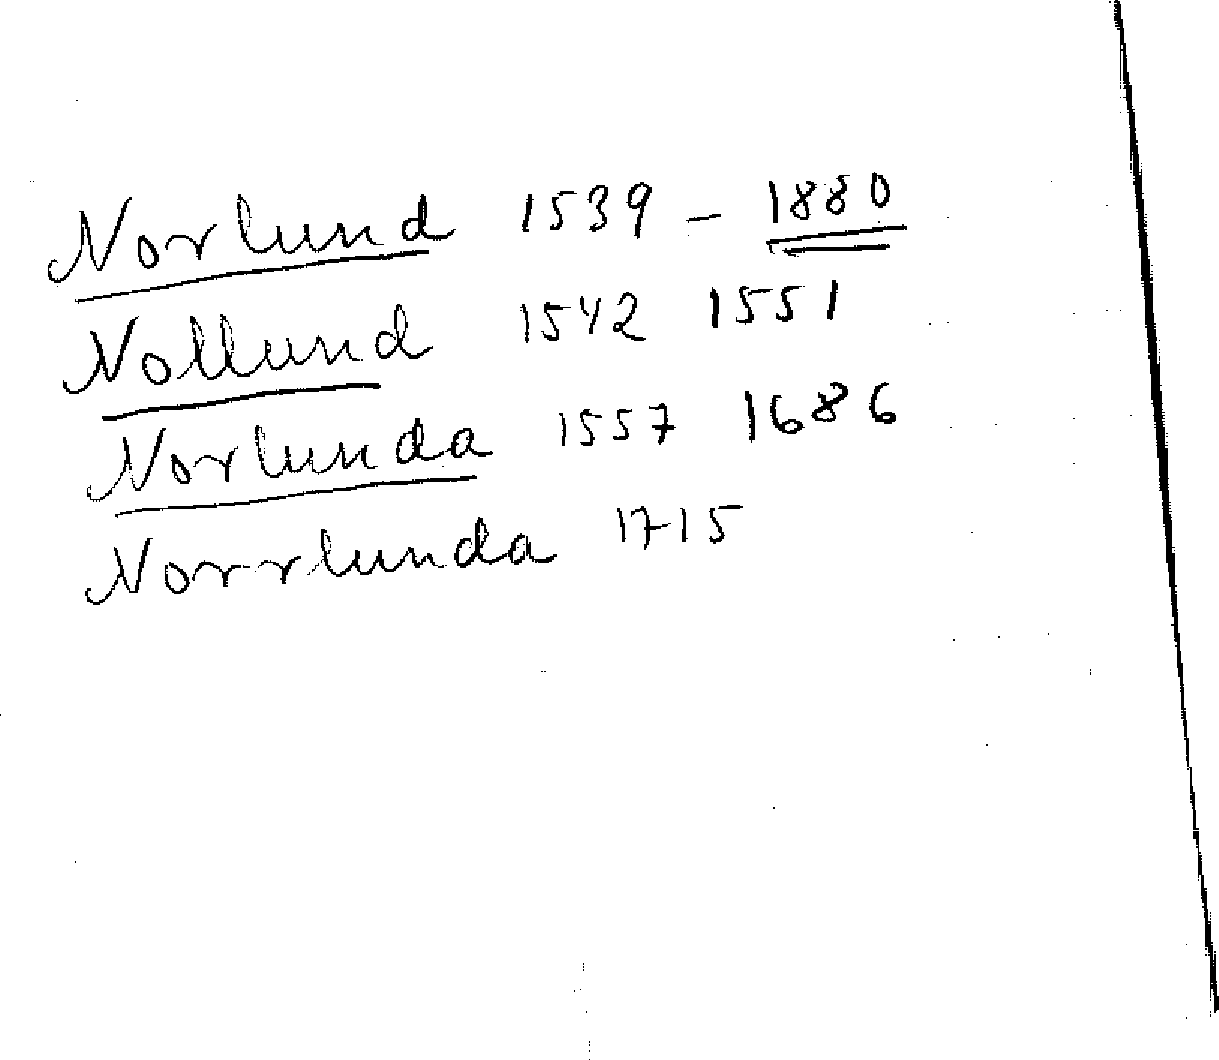 Norlund 1539 - 1880
Nollund 1542 1551
Norlunda 1557 1686
Norrlunda 1715